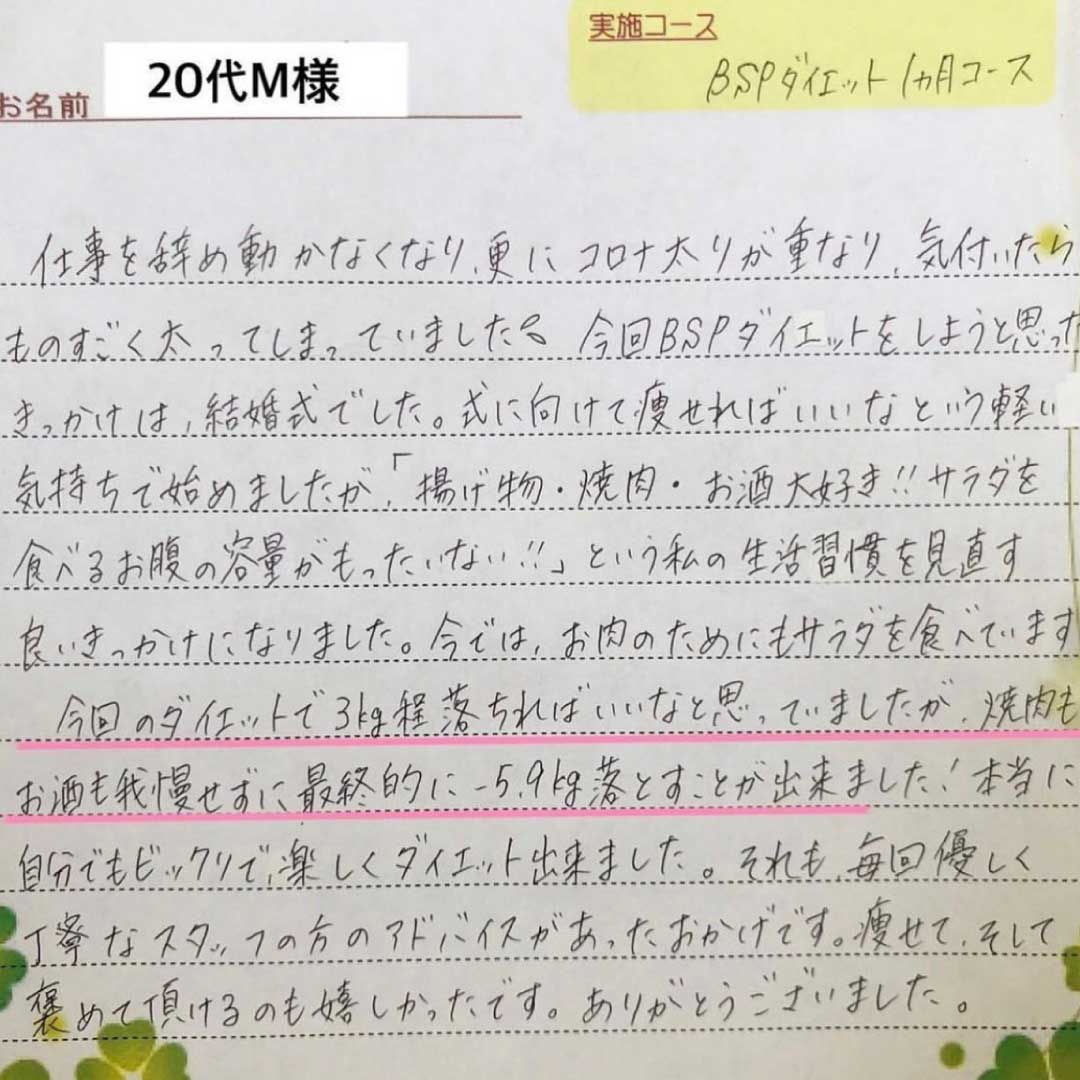 実施コース
BSPダイエット 1ヵ月コース
お名前 20代M様
仕事を辞め動かなくなり、更にコロナ太りが重なり、気付いたら
ものすごく太ってしまっていました。今回BSPダイエットをしようと思った
きっかけは、結婚式でした。式に向けて痩せればいいなという軽い
気持ちで始めましたが、「揚げ物・焼肉・お酒大好き!!サラダを
食べるお腹の容量がもったいない!!」という私の生活習慣を見直す
良いきっかけになりました。今では、お肉のためにもサラダを食べています
今回のダイエットで3kg程落ちればいいなと思っていましたが、焼肉も
お酒も我慢せずに最終的に-5.9kg落とすことが出来ました!本当に
自分でもビックリで、楽しくダイエット出来ました。それも、毎回優しく
丁寧なスタッフの方のアドバイスがあったおかげです。痩せて、そして
褒めて頂けるのも嬉しかったです。ありがとうございました。